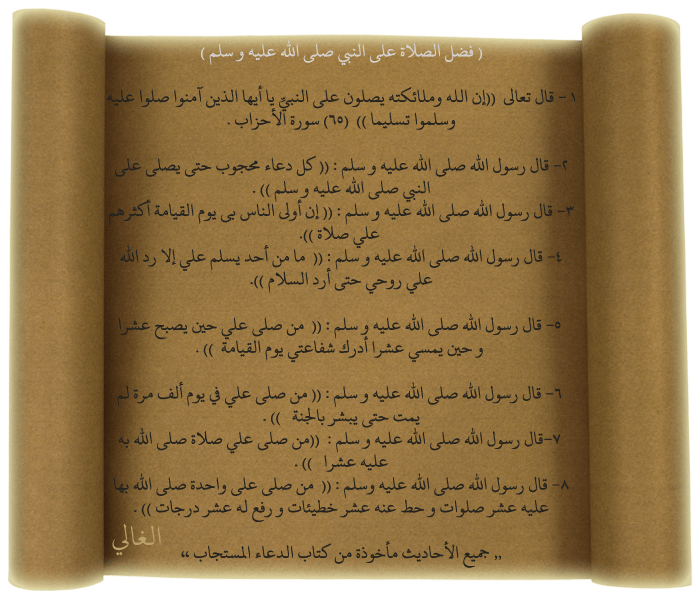 ( فضل الصلاة على النبي صلى الله عليه و سلم )
١ - قال تعالى ((إن الله وملائكته يصلون على النبيِّ يا أيها الذين آمنوا صلوا عليه
وسلموا تسليما )) (٦٥) سورة الأحزاب .
٢- قال رسول الله صلى الله عليه و سلم : (( كل دعاء محجوب حتى يصلى على
النبي صلى الله عليه و سلم )) .
٣- قال رسول الله صلى الله عليه و سلم : (( إن أولى الناس بى يوم القيامة أكثرهم
علي صلاة )).
٤- قال رسول الله صلى الله عليه و سلم : (( ما من أحد يسلم علي إلا رد الله
علي روحي حتى أرد السلام )).
٥- قال رسول الله صلى الله عليه و سلم : (( من صلى علي حين يصبح عشرا
و حين يمسي عشرا أدرك شفاعتي يوم القيامة )) .
٦- قال رسول الله صلى الله عليه و سلم : (( من صلى علي في يوم ألف مرة لم
يمت حتى يبشر بالجنة )) .
٧-قال رسول الله صلى الله عليه و سلم : ((من صلى علي صلاة صلى الله به
عليه عشرا )) .
٨- قال رسول الله صلى الله عليه وسلم : (( من صلى على واحدة صلى الله بها
عليه عشر صلوات و حط عنه عشر خطيئات و رفع له عشر درجات )) .
الغالي
,, جميع الأحاديث مأخوذة من كتاب الدعاء المستجاب “